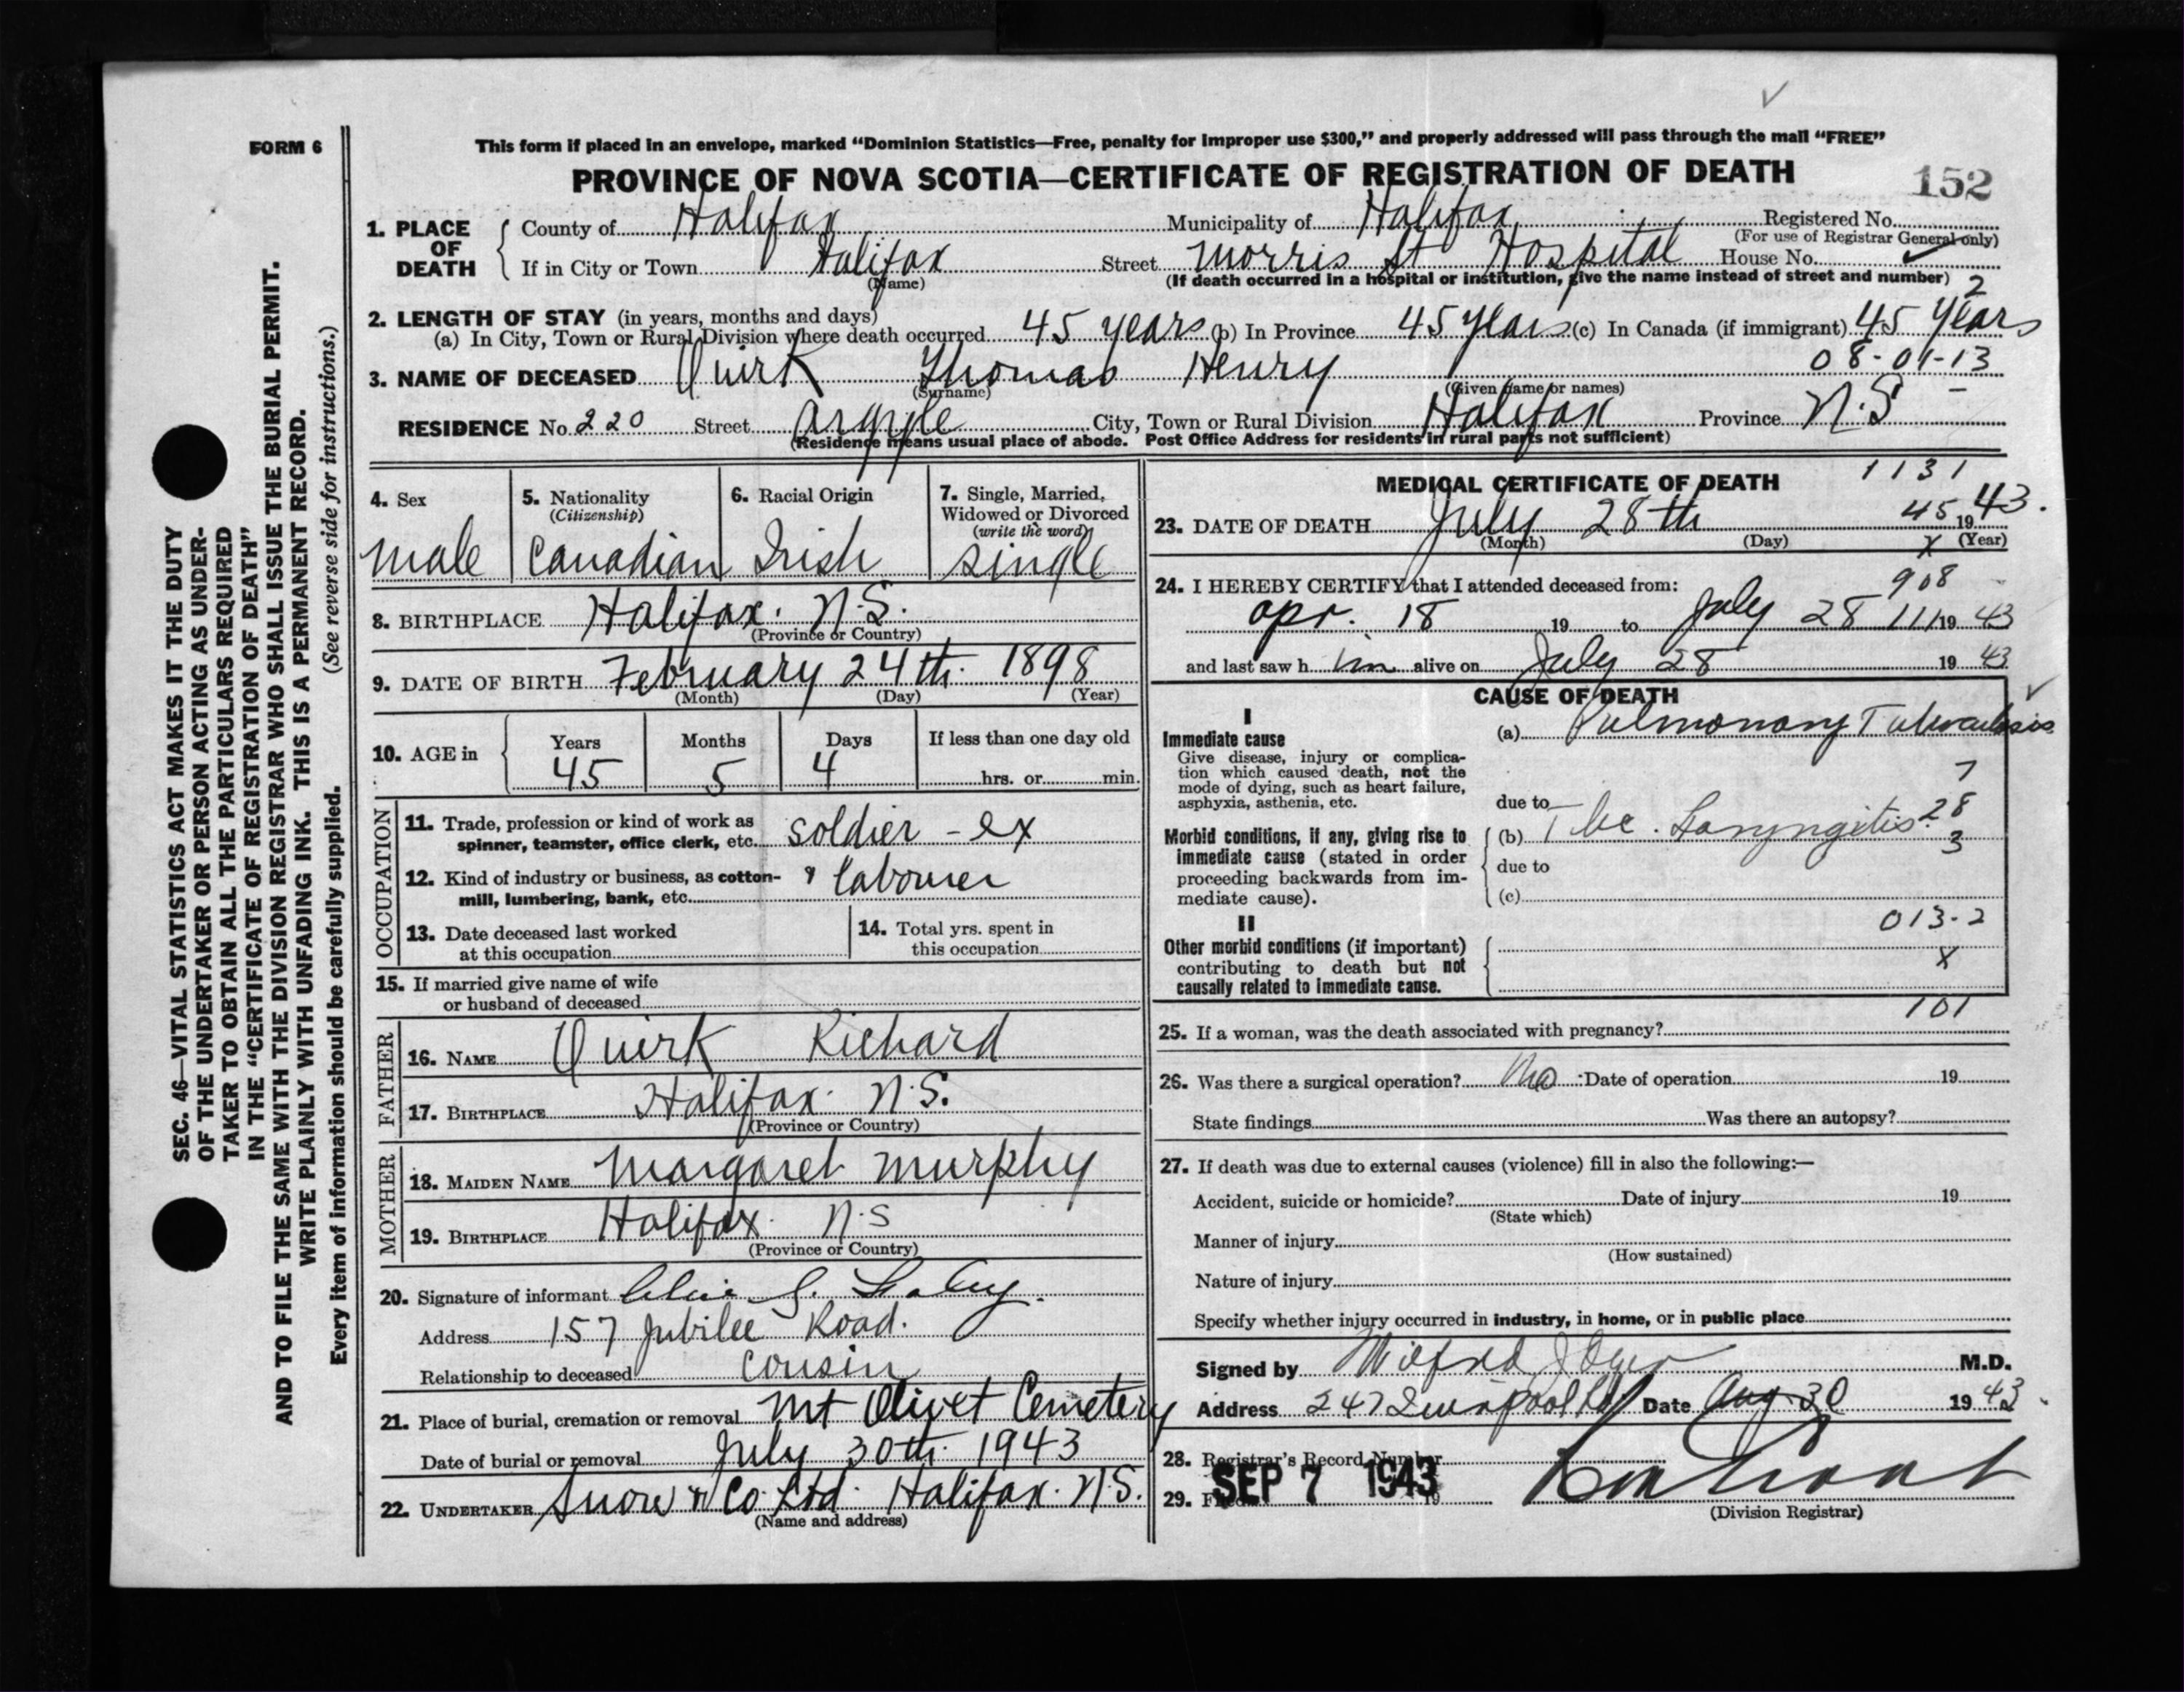 FORM 6
This form if placed in an envelope, marked “Dominion Statistics—Free, penalty for improper use $300,” and properly addressed will pass through the mail “FREE”
PROVINCE OF NOVA SCOTIA—CERTIFICATE OF REGISTRATION OF DEATH
152
1. PLACE OF DEATH
County of Halifax Municipality of Halifax Registered No.
(For use of Registrar General only)
If in City or Town Halifax Street Morris St Hospital House No.
(Name)
(If death occurred in a hospital or institution, give the name instead of street and number) 2
2. LENGTH OF STAY (in years, months and days)
(a) In City, Town or Rural Division where death occurred 45 years (b) In Province 45 years (c) In Canada (if immigrant) 45 years
08-01-13
3. NAME OF DECEASED Quirk Thomas Henry
(Surname) (Given name or names)
RESIDENCE No. 220 Street Argyle City, Town or Rural Division Halifax Province N.S
(Residence means usual place of abode. Post Office Address for residents in rural parts not sufficient)
4. Sex
male
5. Nationality
(Citizenship)
Canadian
6. Racial Origin
Irish
7. Single, Married,
Widowed or Divorced
(write the word)
single
8. BIRTHPLACE Halifax. N.S.
(Province or Country)
9. DATE OF BIRTH February 24th. 1898
(Month) (Day) (Year)
10. AGE in
Years Months Days If less than one day old
45 5 4 hrs. or min.
OCCUPATION
11. Trade, profession or kind of work as
spinner, teamster, office clerk, etc. soldier - ex
12. Kind of industry or business, as cotton-
mill, lumbering, bank, etc. & labourer
13. Date deceased last worked
at this occupation
14. Total yrs. spent in
this occupation
15. If married give name of wife
or husband of deceased
FATHER
16. NAME Quirk Richard
17. BIRTHPLACE Halifax. N.S.
(Province or Country)
MOTHER
18. MAIDEN NAME Margaret Murphy
19. BIRTHPLACE Halifax. N.S
(Province or Country)
20. Signature of informant
Address 157 Jubilee Road.
Relationship to deceased cousin
21. Place of burial, cremation or removal Mt Olivet Cemetery
Date of burial or removal July 30th. 1943
22. UNDERTAKER Snow & Co. Ltd. Halifax. N.S.
(Name and address)
MEDICAL CERTIFICATE OF DEATH
1131
23. DATE OF DEATH July 28th 45 1943.
(Month) (Day) X (Year)
24. I HEREBY CERTIFY that I attended deceased from:
908
apr. 18 19 to July 28 111 19 43
and last saw h im alive on July 28 19 43
CAUSE OF DEATH
I
Immediate cause
Give disease, injury or complica-
tion which caused death, not the
mode of dying, such as heart failure,
asphyxia, asthenia, etc.
(a) Pulmonary Tuberculosis
7
due to
28
Morbid conditions, if any, giving rise to
immediate cause (stated in order
proceeding backwards from im-
mediate cause).
(b) Tbc. Laryngitis.
3
due to
(c)
II
013-2
Other morbid conditions (if important)
contributing to death but not
causally related to immediate cause.
X
101
25. If a woman, was the death associated with pregnancy?
26. Was there a surgical operation? No Date of operation 19
State findings Was there an autopsy?
27. If death was due to external causes (violence) fill in also the following:—
Accident, suicide or homicide? Date of injury 19
(State which)
Manner of injury
(How sustained)
Nature of injury
Specify whether injury occurred in industry, in home, or in public place
Signed by M.D.
Address 247 Date Aug 30 1943
28. Registrar's Record Number
29. Filed SEP 7 1943 19
(Division Registrar)
SEC. 46—VITAL STATISTICS ACT MAKES IT THE DUTY
OF THE UNDERTAKER OR PERSON ACTING AS UNDER-
TAKER TO OBTAIN ALL THE PARTICULARS REQUIRED
IN THE “CERTIFICATE OF REGISTRATION OF DEATH”
AND TO FILE THE SAME WITH THE DIVISION REGISTRAR WHO SHALL ISSUE THE BURIAL PERMIT.
WRITE PLAINLY WITH UNFADING INK. THIS IS A PERMANENT RECORD.
Every item of information should be carefully supplied. (See reverse side for instructions.)